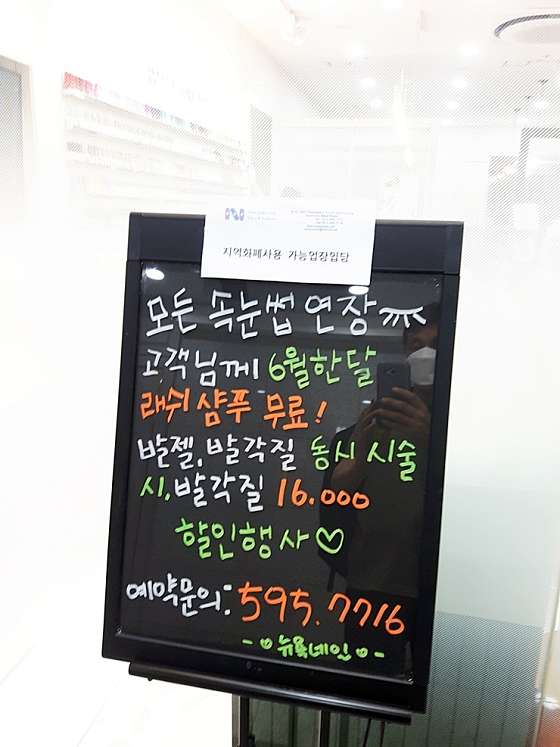 지역화폐사용 가능업장입당
모든 속눈썹 연장
고객님께 6월한달
래쉬 샴푸 무료!
발젤, 발각질 동시 시술
시, 발각질 16.000
할인행사♡
예약문의: 595.7716
-ㅇ뉴욕네일ㅇ-